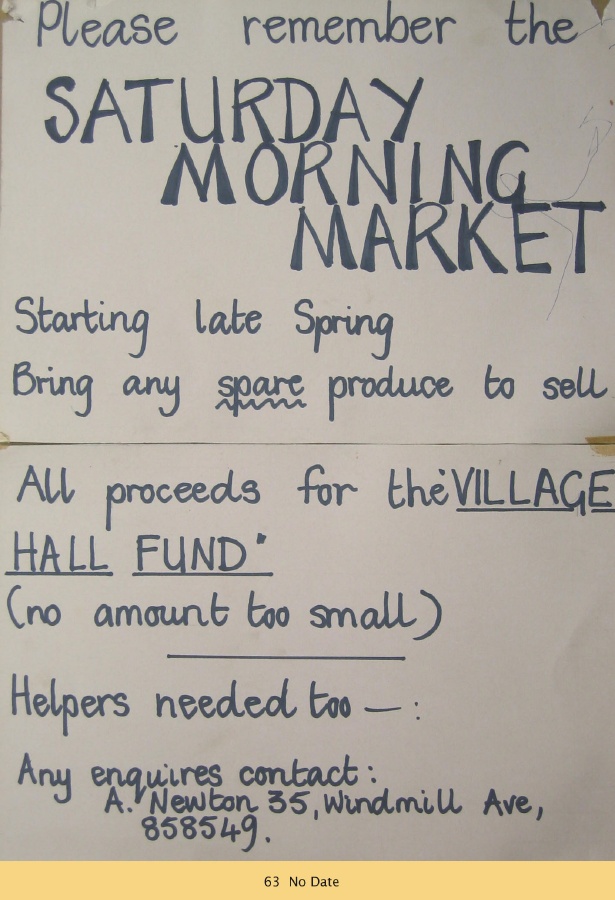 Please remember the
SATURDAY
MORNING
MARKET
Starting late Spring
Bring any spare produce to sell
All proceeds for the 'VILLAGE
HALL FUND'
(no amount too small)
Helpers needed too — :
Any enquires contact:
A. Newton 35, Windmill Ave,
858549.
63 No Date